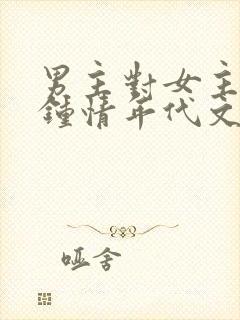 男主對女主
鍾情年代文
哑舍